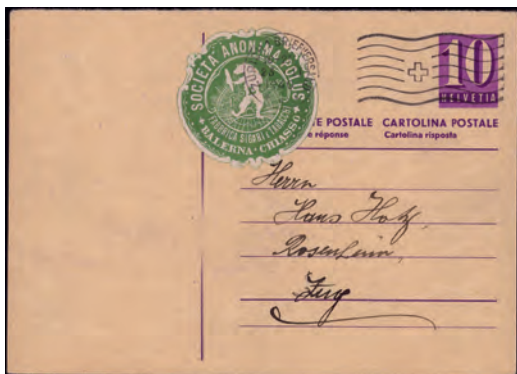 SOCIETÀ ANONIMA POLUS
FABBRICA SIGARI E TABACCHI
BALERNA - CHIASSO
10
HELVETIA
TE POSTALE CARTOLINA POSTALE
e réponse Cartolina risposta
Herrn
Hans Hotz,
Rosenheim,
Zug